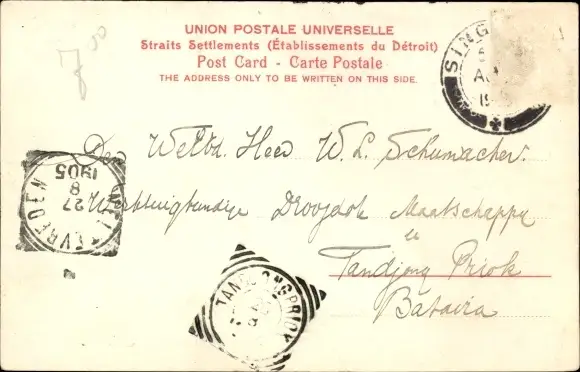 UNION POSTALE UNIVERSELLE
Straits Settlements (Établissements du Détroit)
Post Card - Carte Postale
THE ADDRESS ONLY TO BE WRITTEN ON THIS SIDE.
SING
Den Weled. Heer W. L. Schumacher.
Werktuigkundige Droogdok Maatschappy
te
Tandjong Priok
Batavia
WELTEVREDEN
27
8
1905
TANDJONGPRIOK